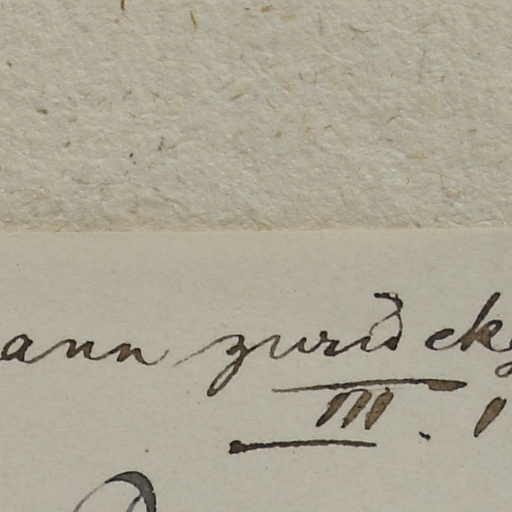 ann zurück
III.